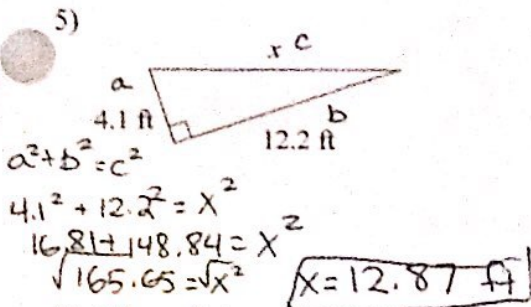 5)
x c
a
4.1 ft
b
12.2 ft
a² + b² = c²
4.1² + 12.2² = x²
16.81 + 148.84 = x²
√165.65 = √x²
x = 12.87 ft